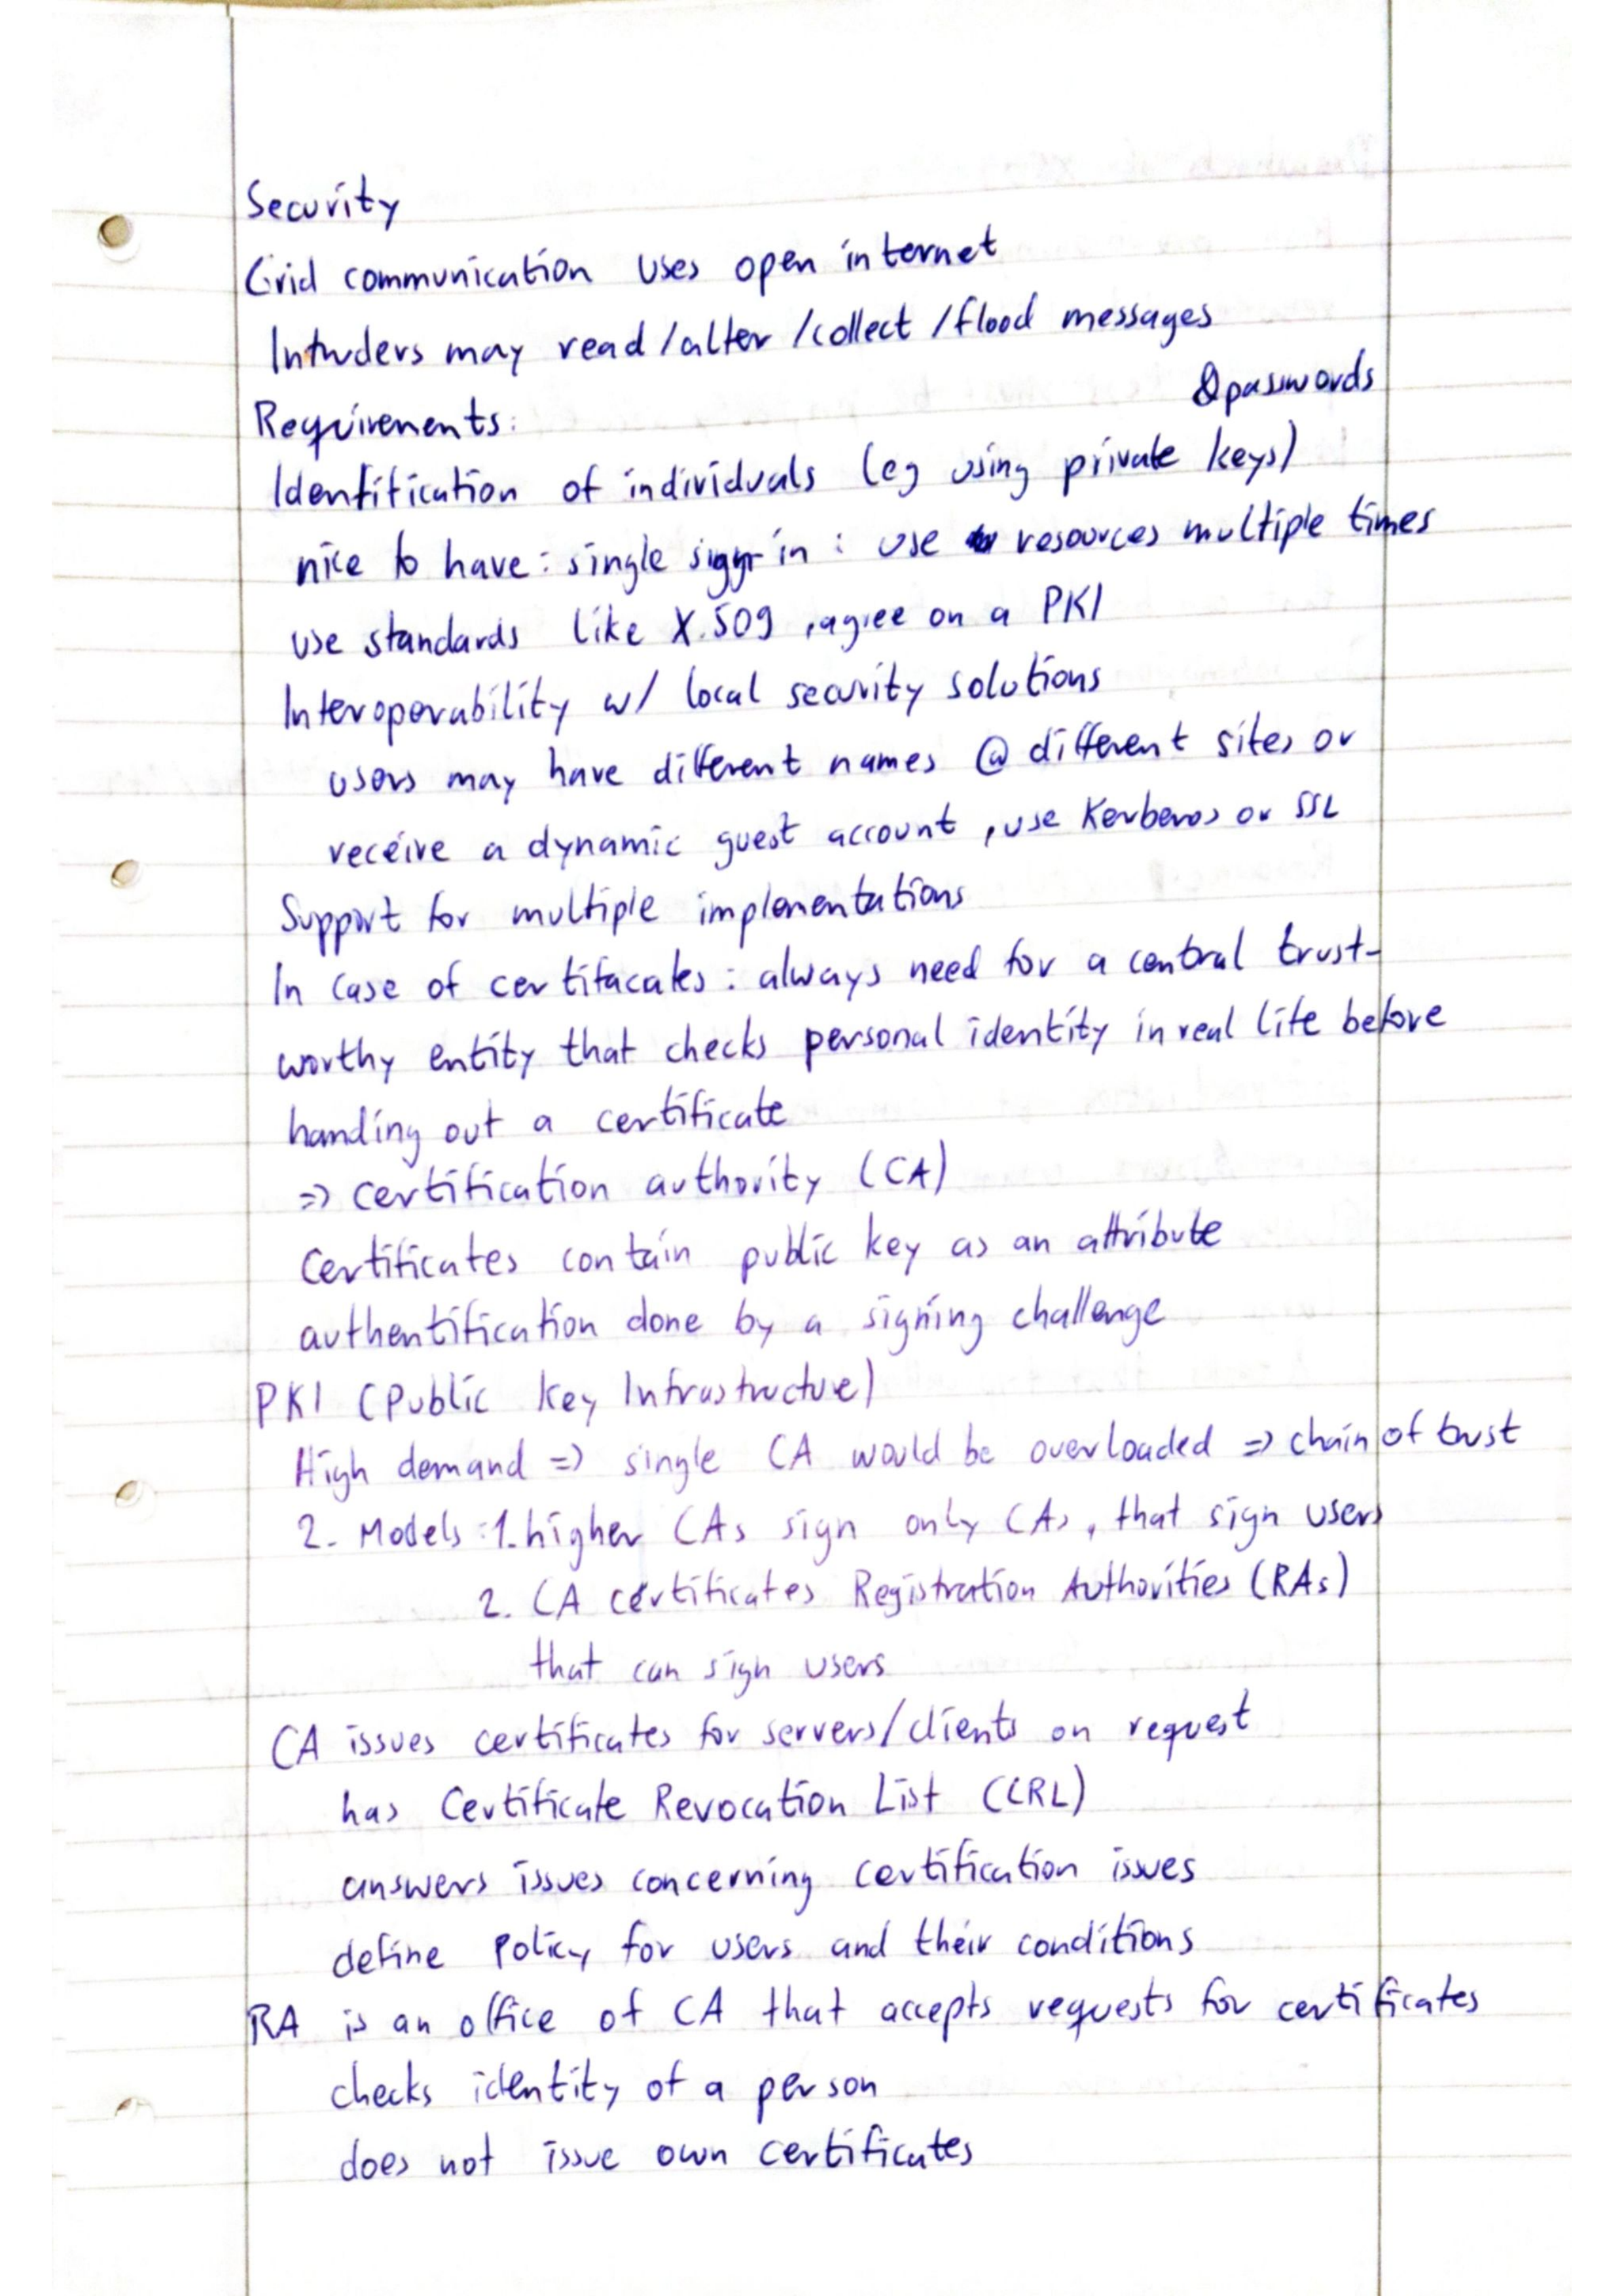 Security
Grid communication uses open internet
Intruders may read/alter/collect/flood messages
& passwords
Requirements:
Identification of individuals (eg using private keys)
nice to have: single sign in: use resources multiple times
use standards like X.509, agree on a PKI
Interoperability w/ local security solutions
users may have different names @ different sites or
receive a dynamic guest account, use Kerberos or SSL
Support for multiple implementations
In case of certifacates: always need for a central trust-
worthy entity that checks personal identity in real life before
handing out a certificate
=> certification authority (CA)
Certificates contain public key as an attribute
authentification done by a signing challenge
PKI (Public Key Infrastructure)
High demand => single CA would be overloaded => chain of trust
2. Models: 1. higher CAs sign only CAs, that sign users
2. CA certificates Registration Authorities (RAs)
that can sign users
CA issues certificates for servers/clients on request
has Certificate Revocation List (CRL)
answers issues concerning certification issues
define policy for users and their conditions
RA is an office of CA that accepts requests for certificates
checks identity of a person
does not issue own certificates